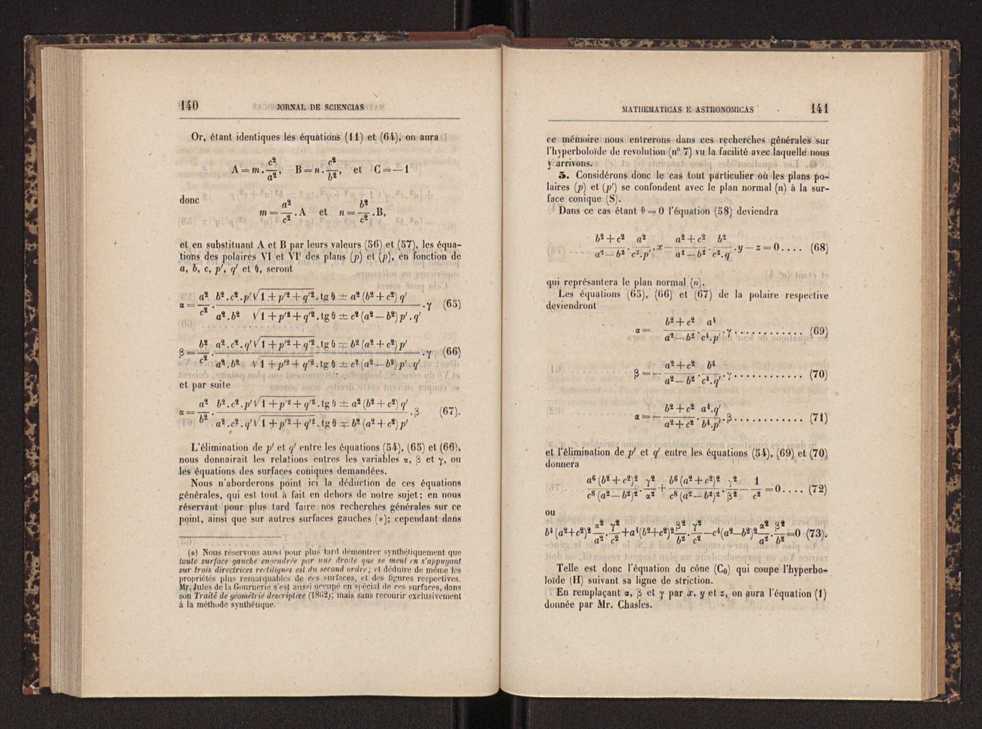 140 JORNAL DE SCIENCIAS
Or, étant identiques les équations (11) et (64), on aura
A = m . c²/a², B = n . c²/b², et C = — 1
donc
m = a²/c² . A et n = b²/c² . B,
et en substituant A et B par leurs valeurs (56) et (57), les équa-
tions des polaires VI et VI' des plans (p) et (p), en fonction de
a, b, c, p', q' et θ, seront
α = a²/c² . (b².c².p'√1+p'²+q'².tg θ ± a²(b²+c²) q')/(a².b² √1+p'²+q'².tg θ ± c²(a²—b²) p'.q') . γ (65)
β = b²/c² . (a².c².q'√1+p'²+q'².tg θ ∓ b²(a²+c²) p')/(a².b² √1+p'²+q'².tg θ ± c²(a²—b²) p'.q') . γ (66)
et par suite
α = a²/b² . (b².c².p'√1+p'²+q'².tg θ ± a²(b²+c²) q')/(a².c².q'√1+p'²+q'².tg θ ∓ b²(a²+c²) p') . β (67).
L'élimination de p' et q' entre les équations (54), (65) et (66),
nous donnairait les relations entres les variables α, β et γ, ou
les équations des surfaces coniques demandées.
Nous n'aborderons point ici la déduction de ces équations
générales, qui est tout à fait en dehors de notre sujet; en nous
réservant pour plus tard faire nos recherches générales sur ce
point, ainsi que sur autres surfaces gauches (*); cependant dans
(*) Nous réservons aussi pour plus tard démontrer synthétiquement que
toute surface gauche engendrée par une droite que se meut en s'appuyant
sur trois directrices rectilignes est du second ordre; et déduire de même les
propriétés plus remarquables de ces surfaces, et des figures respectives.
Mr. Jules de la Gournerie s'est aussi occupé en spécial de ces surfaces, dans
son Traité de géométrie descriptive (1862); mais sans recourir exclusivement
à la méthode synthétique.
MATHEMATICAS E ASTRONOMICAS 141
ce mémoire nous entrerons dans ces recherches générales sur
l'hyperboloïde de revolution (nº 7) vu la facilité avec laquelle nous
y arrivons.
5. Considérons donc le cas tout particulier où les plans po-
laires (p) et (p') se confondent avec le plan normal (n) à la sur-
face conique (S).
Dans ce cas étant θ = 0 l'équation (58) deviendra
(b²+c²)/(a²—b²) . a²/(c².p') . x — (a²+c²)/(a²—b²) . b²/(c².q') . y — z = 0 . . . . (68)
qui représantera le plan normal (n).
Les équations (65), (66) et (67) de la polaire respective
deviendront
α = (b²+c²)/(a²—b²) . a⁴/(c⁴.p') . γ . . . . . . . . . . . (69)
β = — (a²+c²)/(a²—b²) . b⁴/(c⁴.q') . γ . . . . . . . . . . . (70)
α = — (b²+c²)/(a²+c²) . (a⁴.q')/(b⁴.p') . β . . . . . . . . . . (71)
et l'élimination de p' et q' entre les équations (54), (69) et (70)
donnera
(a⁶(b²+c²)²)/(c⁸(a²—b²)²) . γ²/α² + (b⁶(a²+c²)²)/(c⁸(a²—b²)²) . γ²/β² — 1/c² = 0 . . . . (72)
ou
b⁴(a²+c²)² α²/a² . γ²/c² + a⁴(b²+c²)² β²/b² . γ²/c² — c⁴(a²—b²)² α²/a² . β²/b² = 0 (73).
Telle est donc l'équation du cône (C₀) qui coupe l'hyperbo-
loïde (H) suivant sa ligne de striction.
En remplaçant α, β et γ par x, y et z, on aura l'équation (1)
donnée par Mr. Chasles.